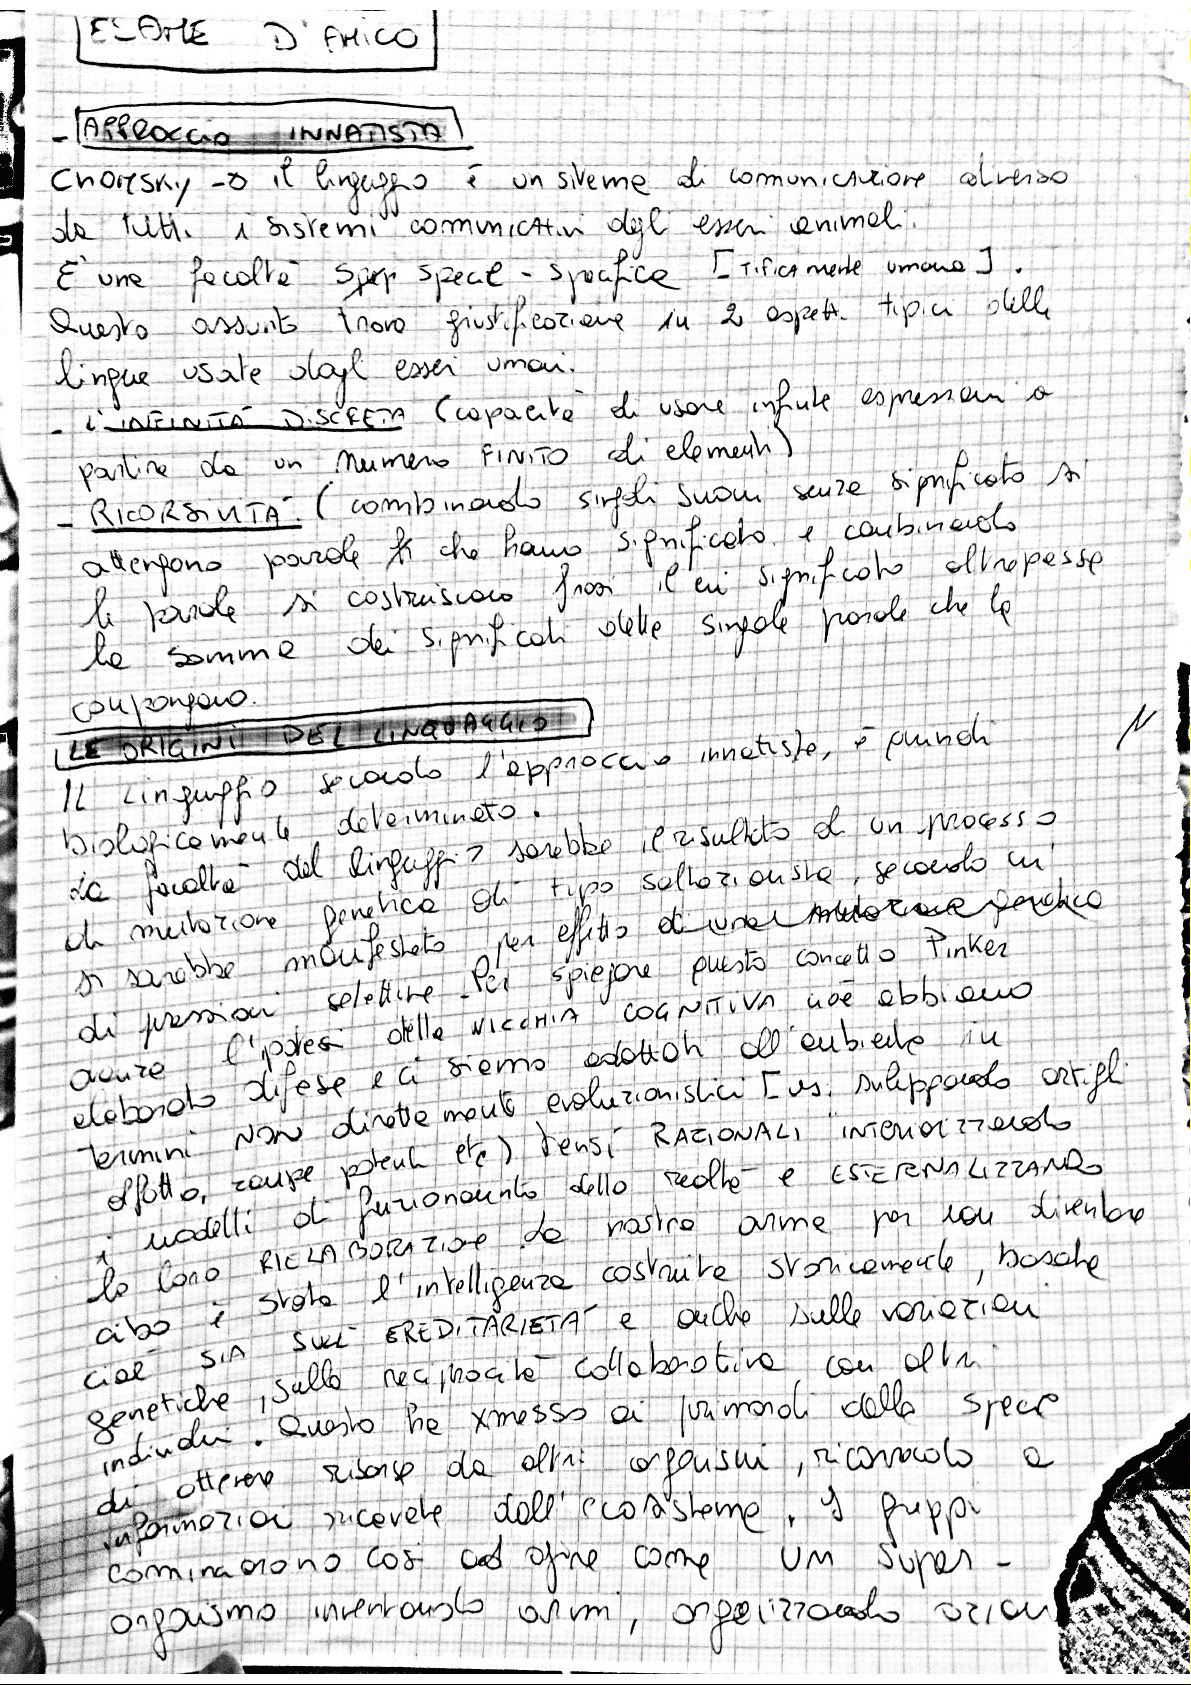 ESAME D'AMICO
- APPROCCIO INNATISTA
CHOMSKY -> il linguaggio è un sistema di comunicazione diverso
da tutti i sistemi comunicativi degli esseri animali.
E' una facoltà spec - specifica [TIFICAmente umana].
Questo assunto trova giustificazione in 2 aspetti tipici delle
lingue usate dagli esseri umani.
- L'INFINITÀ DISCRETA (capacità di usare infinite espressioni a
partire da un numero FINITO di elementi)
- RICORSIVITÀ: (combinando singoli suoni senza significato si
ottengono parole che hanno significato e combinando
le parole si costruiscono frasi il cui significato oltrepassa
la somma dei significati delle singole parole che le
compongono.
LE ORIGINI DEL LINGUAGGIO
IL Linguaggio secondo l'approccio innatista, è quindi
biologicamente determinato.
La facoltà del linguaggio sarebbe il risultato di un processo
di mutazione genetica di tipo saltazionista, secondo cui
si sarebbe manifestato per effetto di una mutazione genetica
di pressioni selettive. Per spiegare questo concetto Pinker
avanza l'ipotesi della NICCHIA COGNITIVA cioè abbiamo
elaborato difese e ci siamo adattati all'ambiente in
termini NON direttamente evoluzionistici [vs. sviluppando artigli
zampe potenti etc) bensì RAZIONALI interiorizzando
i modelli di funzionamento della realtà e ESTERNALIZZANDO
la loro RIELABORAZIONE. La nostra arma per non diventare
cibo è stata l'intelligenza costruita storicamente, basata
cioè SIA SULL' EREDITARIETÀ e anche sulle variazioni
genetiche, sulla reciprocità collaborativa con altri
individui. Questo ha xmesso ai primordi della specie
di ottenere risorse da altri organismi, ricorrendo a
informazioni ricevute dall'ecosistema. I gruppi
cominciarono così ad agire come un super-
organismo inventando armi, organizzando azioni